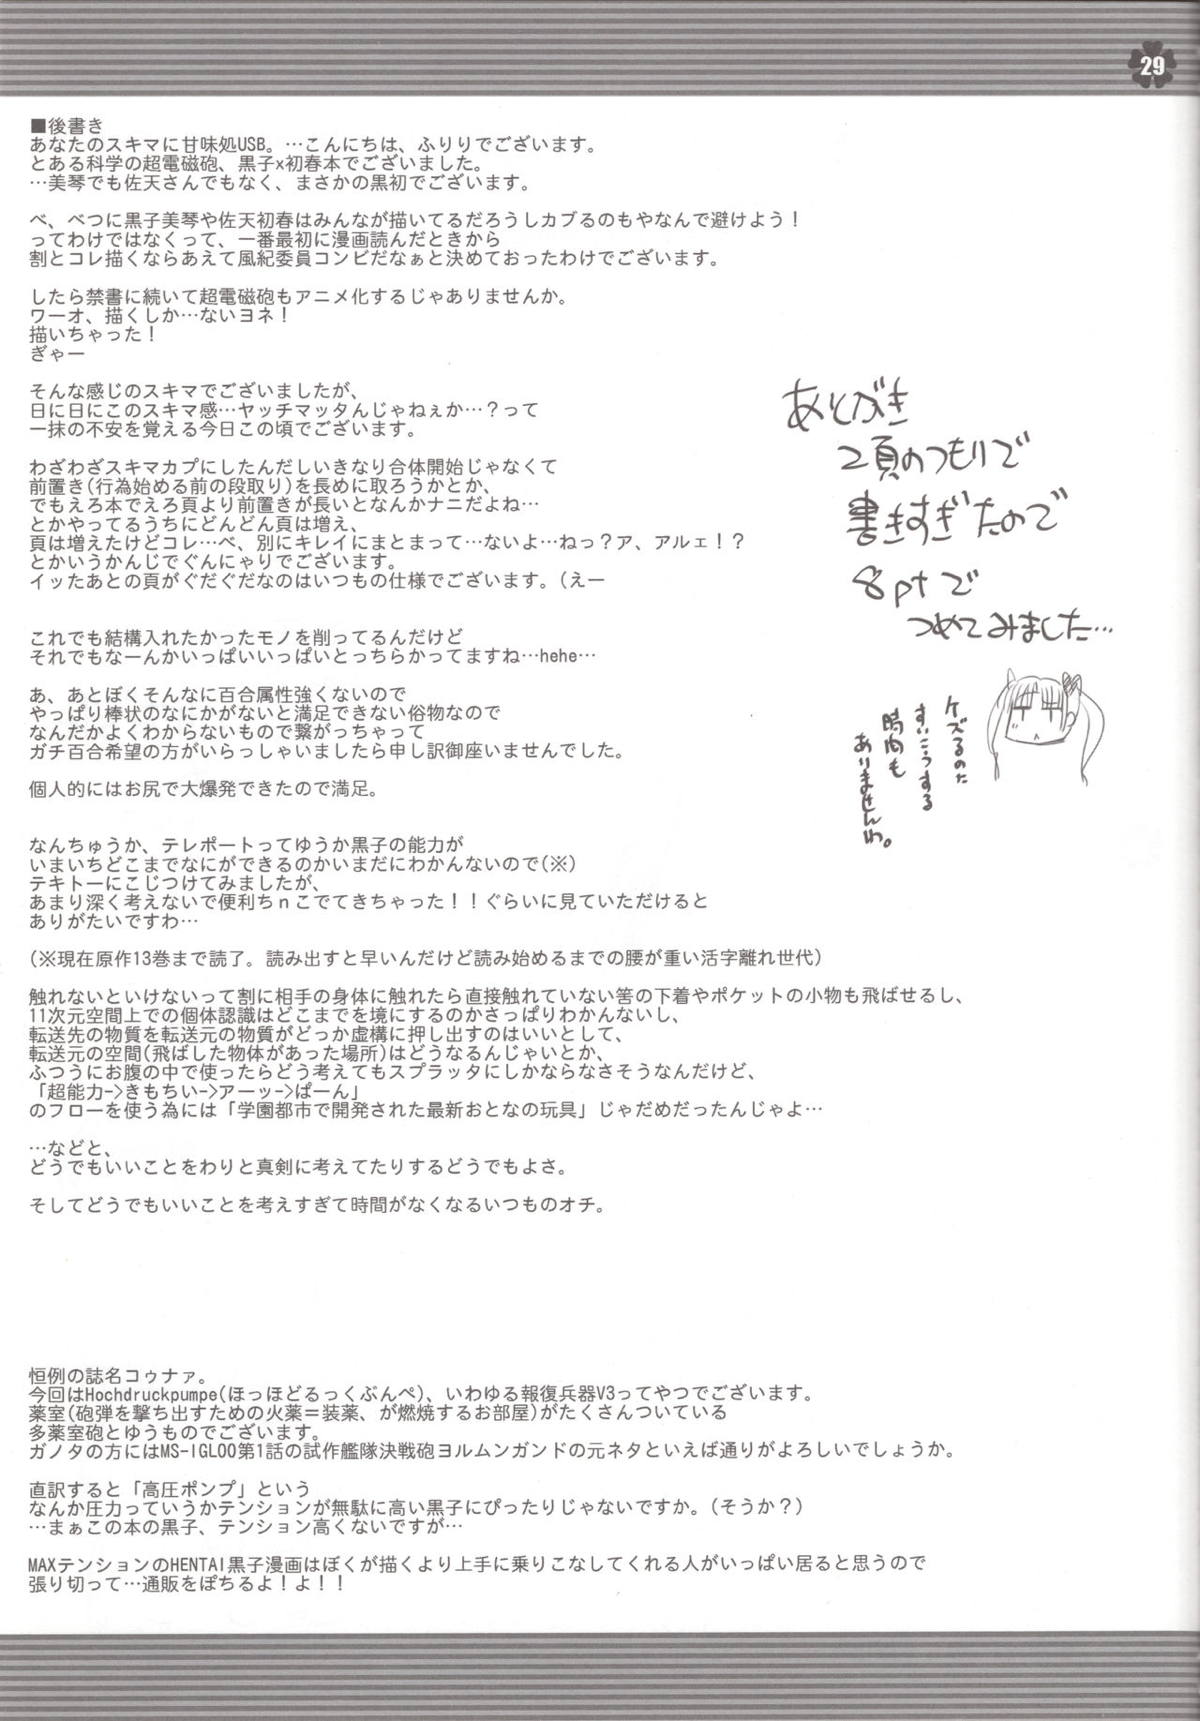 29
■後書き
あなたのスキマに甘味処USB。…こんにちは、ふりりでございます。
とある科学の超電磁砲、黒子x初春本でございました。
…美琴でも佐天さんでもなく、まさかの黒初でございます。
べ、べつに黒子美琴や佐天初春はみんなが描いてるだろうしカブるのもやなんで避けよう！
ってわけではなくって、一番最初に漫画読んだときから
割とコレ描くならあえて風紀委員コンビだなぁと決めておったわけでございます。
したら禁書に続いて超電磁砲もアニメ化するじゃありませんか。
ワーオ、描くしか…ないヨネ！
描いちゃった！
ぎゃー
そんな感じのスキマでございましたが、
日に日にこのスキマ感…ヤッチマッタんじゃねぇか…？って
一抹の不安を覚える今日この頃でございます。
わざわざスキマカプにしたんだしいきなり合体開始じゃなくて
前置き(行為始める前の段取り)を長めに取ろうかとか、
でもえろ本でえろ頁より前置きが長いとなんかナニだよね…
とかやってるうちにどんどん頁は増え、
頁は増えたけどコレ…べ、別にキレイにまとまって…ないよ…ねっ？ア、アルェ！？
とかいうかんじでぐんにゃりでございます。
イッたあとの頁がぐだぐだなのはいつもの仕様でございます。(えー
これでも結構入れたかったモノを削ってるんだけど
それでもなーんかいっぱいいっぱいとっちらかってますね…hehe…
あ、あとぼくそんなに百合属性強くないので
やっぱり棒状のなにかがないと満足できない俗物なので
なんだかよくわからないもので繋がっちゃって
ガチ百合希望の方がいらっしゃいましたら申し訳御座いませんでした。
個人的にはお尻で大爆発できたので満足。
なんちゅうか、テレポートってゆうか黒子の能力が
いまいちどこまでなにができるのかいまだにわかんないので(※)
テキトーにこじつけてみましたが、
あまり深く考えないで便利ちnこでてきちゃった！！ぐらいに見ていただけると
ありがたいですわ…
(※現在原作13巻まで読了。読み出すと早いんだけど読み始めるまでの腰が重い活字離れ世代)
触れないといけないって割に相手の身体に触れたら直接触れていない筈の下着やポケットの小物も飛ばせるし、
11次元空間上での個体認識はどこまでを境にするのかさっぱりわかんないし、
転送先の物質を転送元の物質がどっか虚構に押し出すのはいいとして、
転送元の空間(飛ばした物体があった場所)はどうなるんじゃいとか、
ふつうにお腹の中で使ったらどう考えてもスプラッタにしかならなさそうなんだけど、
「超能力->きもちい->アーッ->ぱーん」
のフローを使う為には「学園都市で開発された最新おとなの玩具」じゃだめだったんじゃよ…
…などと、
どうでもいいことをわりと真剣に考えてたりするどうでもよさ。
そしてどうでもいいことを考えすぎて時間がなくなるいつものオチ。
恒例の誌名コゥナァ。
今回はHochdruckpumpe(ほっほどるっくぷんぺ)、いわゆる報復兵器V3ってやつでございます。
薬室(砲弾を撃ち出すための火薬＝装薬、が燃焼するお部屋)がたくさんついている
多薬室砲とゆうものでございます。
ガノタの方にはMS-IGLOO第1話の試作艦隊決戦砲ヨルムンガンドの元ネタといえば通りがよろしいでしょうか。
直訳すると「高圧ポンプ」という
なんか圧力っていうかテンションが無駄に高い黒子にぴったりじゃないですか。(そうか？)
…まぁこの本の黒子、テンション高くないですが…
MAXテンションのHENTAI黒子漫画はぼくが描くより上手に乗りこなしてくれる人がいっぱい居ると思うので
張り切って…通販をぽちるよ！よ！！
あとがき
2頁のつもりで
書きすぎたので
8ptで
つめてみました…
ケズるのた
すいこうする
時間も
ありませんわ。